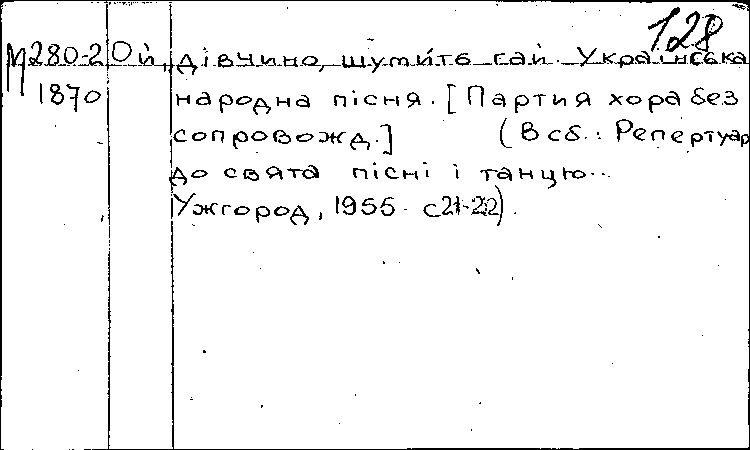 128
М280-2 Ой, дівчино, шумить гай. Українська
1870 народна пісня. [Партия хора без
сопровожд.] (В сб.: Репертуар
до свята пісні і танцю...
Ужгород, 1955. с21-22).